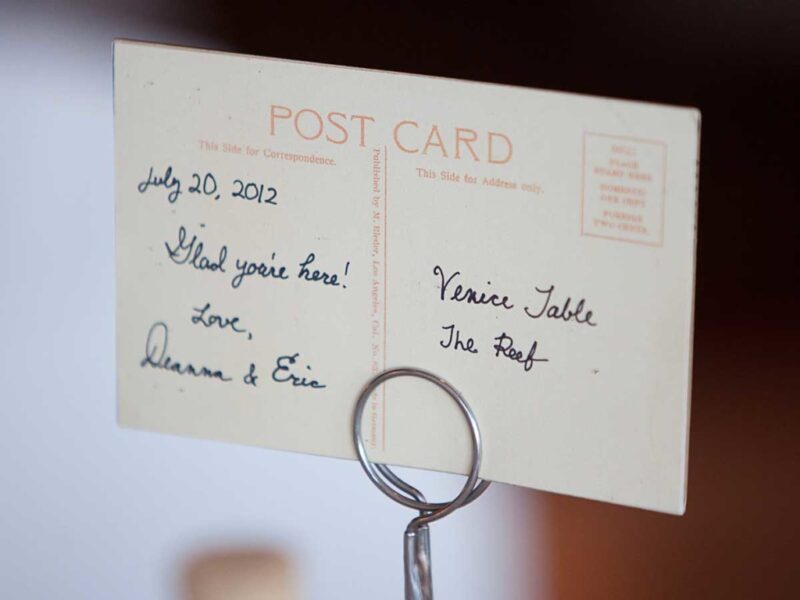 POST CARD
This Side for Correspondence.
This Side for Address only.
July 20, 2012
Glad you're here!
Love,
Deanna & Eric
Published by M. Rieder, Los Angeles, Cal. No.
in Germany
PLACE
STAMP HERE
DOMESTIC
ONE CENT
FOREIGN
TWO CENTS
Venice Table
The Reef